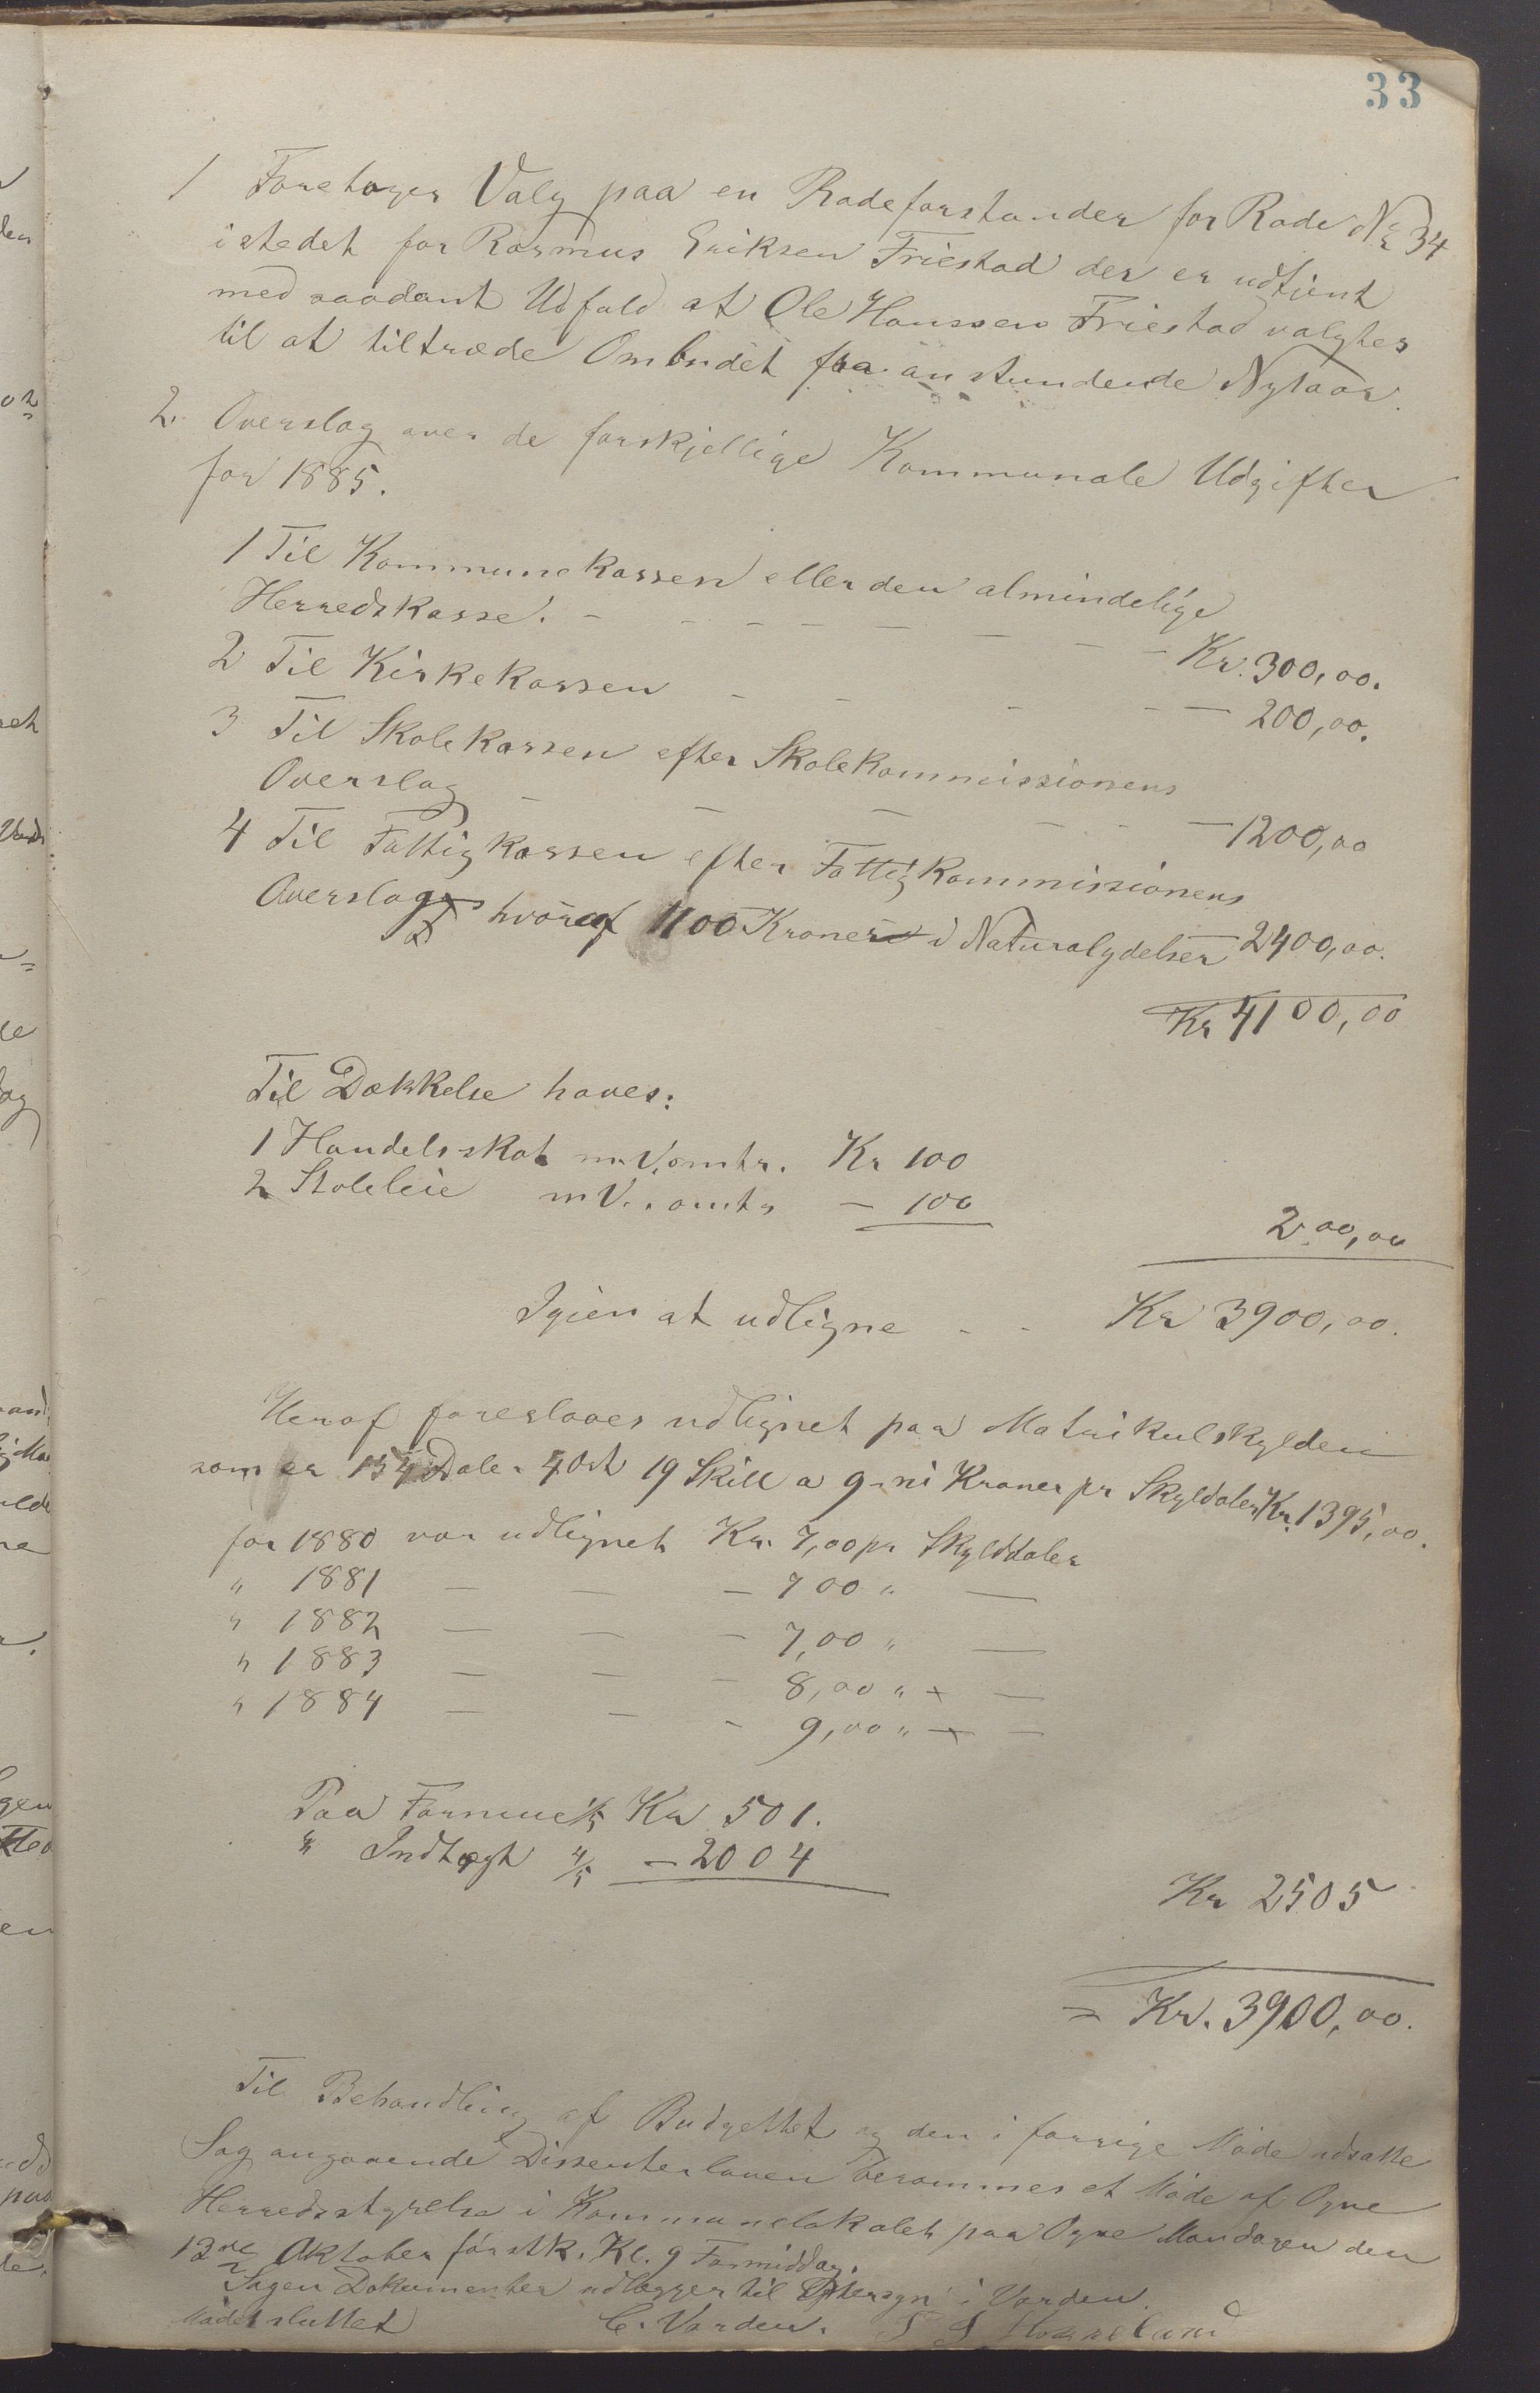 33
1 Foretoges Valg paa en Rodeforstander for Rode No 34
istedet for Rasmus Eriksen Friestad der er udtjent
med saadant Udfald at Ole Hanssen Friestad valgtes
til at tiltræde Ombudet fra anstundende Nytaar.
2. Overslag over de forskjellige Kommunale Udgifter
for 1885.
1 Til Kommunekassen eller den almindelige
Herredskasse. - - - - - - - - - Kr. 300,00.
2 Til Kirkekassen - - - - - 200,00.
3 Til Skolekassen efter Skolekommissionens
Overslag - - - - - - 1200,00
4 Til Fattigkassen efter Fattigkommissionens
Overslag hvoraf 1100 Kroner i Naturalydelser 2400,00.
Kr 4100,00
Til Dækkelse haves:
1 Handelsskat m.V. omtr. Kr 100
2 Stoleleie m V. omtr - 100
200,00
Igien at udligne - - Kr 3900,00.
Heraf foreslaaes udlignet paa Matrikulskylden
som er 154 Daler 4 Ort 19 Skill a 9 - ni Kroner pr Skyldaler Kr. 1395,00.
for 1880 var udlignet Kr. 7,00 pr Skylddaler
" 1881 — — — 700 " —
" 1882 — — - 7,00 " —
" 1883 — — - 8,00 " + —
" 1884 — — - 9,00 " + —
Paa Formue 1/5 Kr 501.
" Indtægt 4/5 — 2004
Kr 2505
= Kr. 3900,00.
Til Behandling af Budgettet og den i forrige Møde udsatte
Sag angaaende Dissenterloven berammes et Møde af Ogne
Herredsstyrelse i Kommunelokalet paa Ogne Mandagen den
13de Oktober førstk. Kl. 9 Formiddag.
Sagens Dokumenter udlægges til Eftersyn i Varden.
Mødet sluttet
C. Varden.